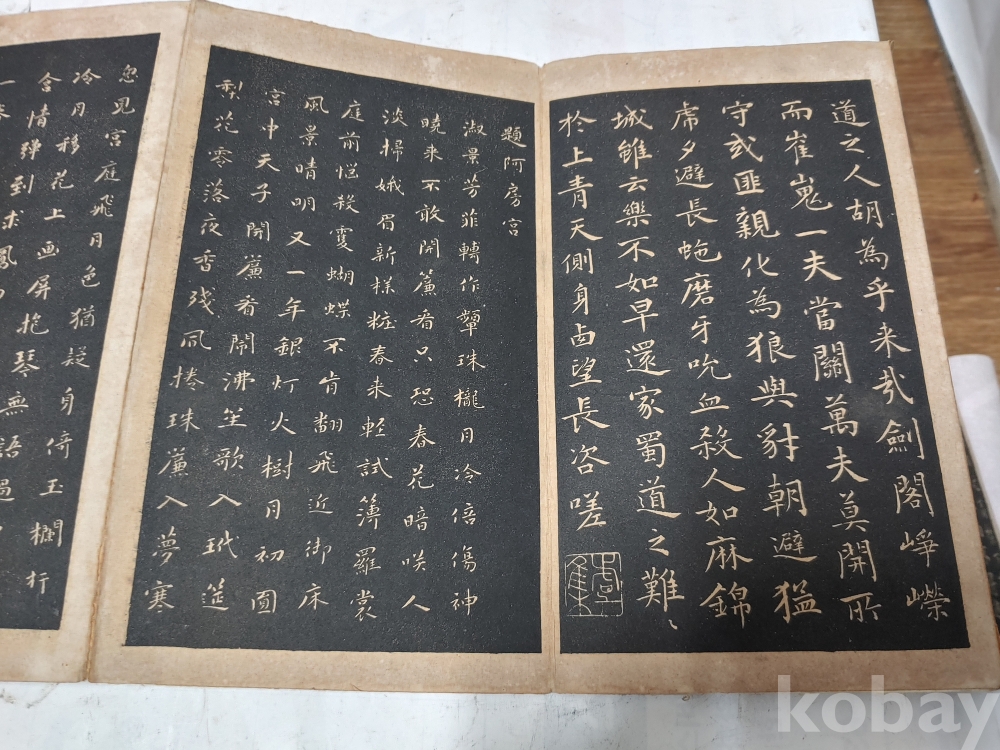 道之人胡為乎来㢤劍閣崢嶸
而崔嵬一夫當關萬夫莫開所
守或匪親化為狼與豺朝避猛
虎夕避長虵磨牙吮血殺人如麻錦
城雖云樂不如早還家蜀道之難〻
於上青天側身西望長咨嗟
題阿房宮
淑景芳菲轉作顰珠櫳月冷倍傷神
曉来不敢開簾看只恐春花暗咲人
淡掃娥眉新樣粧春来輕試薄羅裳
庭前惱殺雙蝴蝶不肯翻飛近御床
風景晴明又一年銀灯火樹月初圓
宮中天子開簾看鬧沸笙歌入玳筵
梨花零落夜香殘風捲珠簾入夢寒
忽見宮庭飛月色猶疑身倚玉欄杆
冷月移花上画屏抱琴無語
含情弹到求鳳
kobay